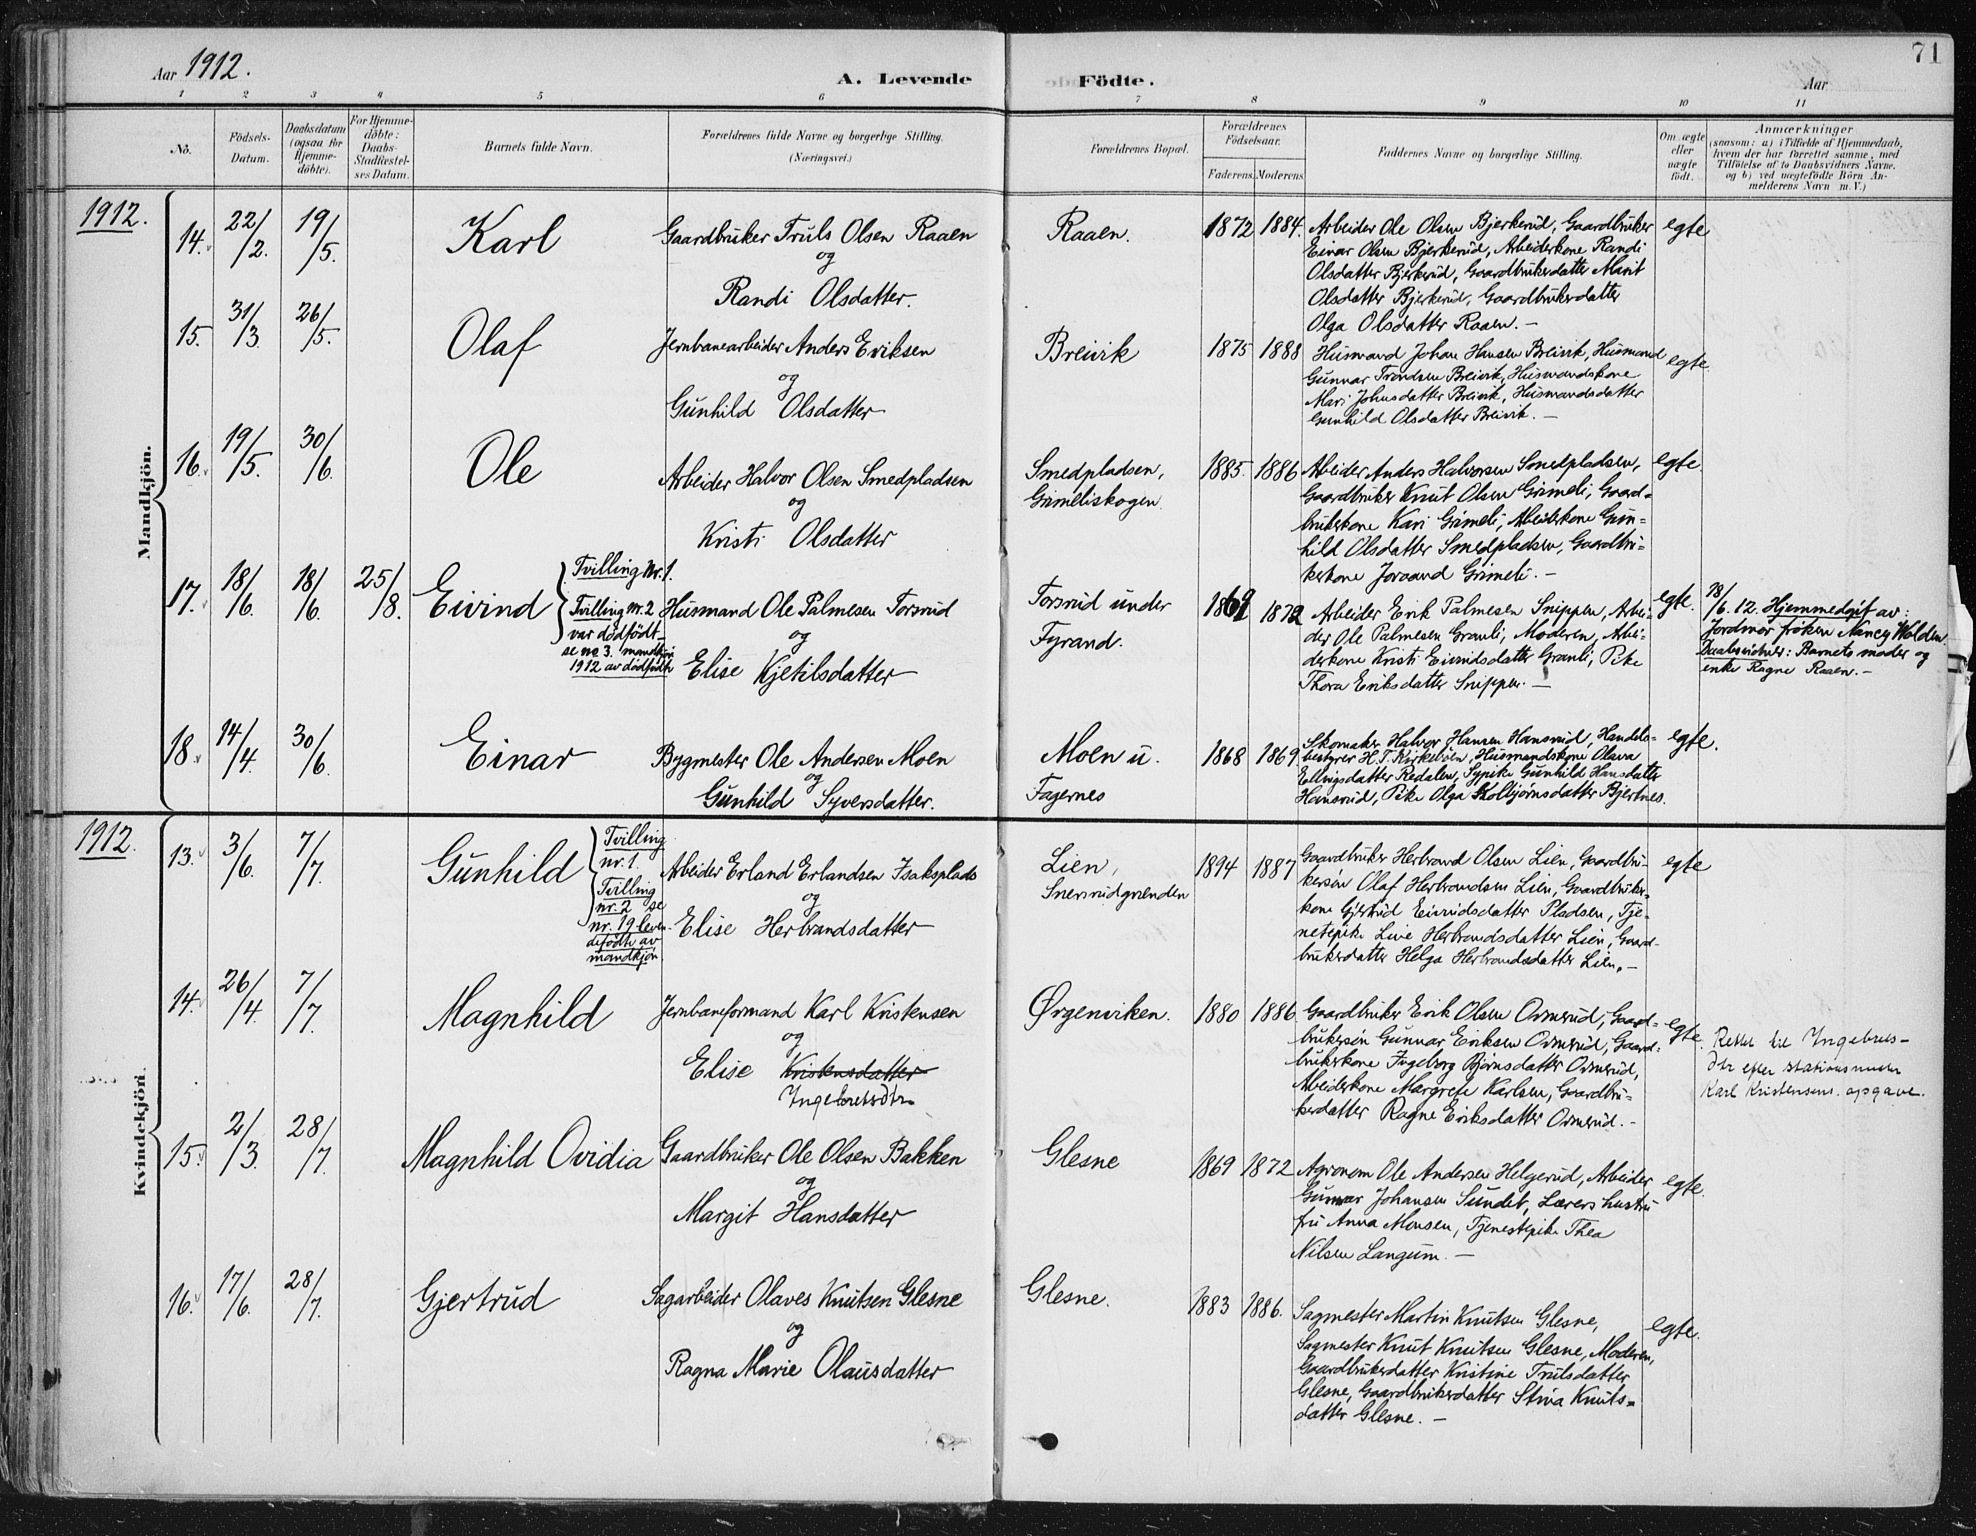 71
Aar 1912.
A. Levende
Födte.
Aar
1 2 3 4 5 6 7 8 9 10 11
No.
Födsels-
Datum.
Daabsdatum
(ogsaa for
Hjemme-
döbte).
For Hjemme-
döbte:
Daabs-
Stadfæstel-
ses Datum.
Barnets fulde Navn.
Forældrenes fulde Navne og borgerlige Stilling.
(Næringsvei.)
Forældrenes Bopæl.
Forældrenes
Födselsaar.
Faderens. Moderens.
Faddernes Navne og borgerlige Stilling.
Om ægte
eller
uægte
født.
Anmærkninger
(saasom: a) i Tilfælde af Hjemmedaab,
hvem der har forrettet samme, med
Tilföielse af to Daabsvidners Navne,
og b) ved uægtefödte Börn An-
melderens Navn m.V.)
Mandkjön.
1912.
14. 22/2. 19/5. Karl
Gaardbruker Truls Olsen Raaen
og
Randi Olsdatter.
Raaen. 1872 1884.
Arbeider Ole Olsen Bjerkerud, Gaardbruker
Einar Olsen Bjerkerud, Arbeiderkone Randi
Olsdatter Bjerkerud, Gaardbrukerdatter Marit
Olsdatter Bjerkerud, Gaardbrukerdatter
Olga Olsdatter Raaen. —
egte
15. 31/3. 26/5. Olaf
Jernbanearbeider Anders Eriksen
og
Gunhild Olsdatter
Breivik 1875 1888
Husmand Johan Hansen Breivik, Husmand
Gunnar Trondsen Breivik, Husmandskone
Mari Johnsdatter Breivik, Husmandsdatter
Gunhild Olsdatter Breivik. —
egte.
16. 19/5. 30/6. Ole
Arbeider Halvor Olsen Smedpladsen
og
Kristi Olsdatter
Smedpladsen,
Grimeliskogen
1885. 1886
Arbeider Anders Halvorsen Smedpladsen,
Gaardbruker Knut Olsen Grimeli, Gaard-
brukerkone Kari Grimeli, Arbeiderkone Gun-
hild Olsdatter Smedpladsen, Gaardbru-
kerkone Joraand Grimeli. —
egte.
17. 18/6. 18/6. 25/8. Eivind
Tvilling Nr. 1.
Tvilling nr. 2
var dödfödt —
se no 3. mandkjön
1912 av dödfödte
Husmand Ole Palmesen Torsrud
og
Elise Kjetilsdatter
Torsrud under
Fyrand.
1869 1872
Arbeider Erik Palmesen Snippen, Arbei-
der Ole Palmesen Granli, Moderen, Arbei-
derkone Kristi Eivindsdatter Granli, Pike
Thora Eriksdatter Snippen. —
egte.
18/6. 12. Hjemmedöpt av:
Jordmor fröken Nancy Wolden
Daabsvidner: Barnets moder og
enke Ragne Raaen. —
18. 14/4. 30/6. Einar
Bygmester Ole Andersen Moen
og
Gunhild Syversdatter.
Moen u.
Fagernes
1868 1869
Skomaker Halvor Hansen Hansrud, Handels-
bestyrer H. T. Kirkevoien, Husmandskone Olava
Ellingsdatter Redalen, Sypike Gunhild Hansdatter
Hansrud, Pike Olga Skolbjørnsdatter Bjertnes.
egte.
Kvindekjön.
1912.
13. 3/6. 7/7. Gunhild
Tvilling
nr. 1.
Tvilling
nr. 2 se
nr. 19 leven-
defödte av
mandkjön.
Arbeider Erland Erlandsen Isaksplads
og
Elise Herbrandsdatter
Lien,
Snersrudgrænden
1894 1887
Gaardbruker Herbrand Olsen Lien, Gaardbru-
kersön Olaf Herbrandsen Lien, Gaardbruker-
kone Gjertrud Eivindsdatter Pladsen, Tje-
nestepike Live Herbrandsdatter Lien, Gaard-
brukerdatter Helga Herbrandsdatter Lien. —
egte
14. 26/4. 7/7. Magnhild
Jernbaneformand Karl Kristensen
og
Elise Kristensdatter
Ingebretsdtr.
Ørgenviken. 1880 1886
Gaardbruker Erik Olsen Ormerud, Gaard-
brukersön Gunnar Eriksen Ormerud, Gaard-
brukerkone Ingeborg Bjørnsdatter Ormerud,
Arbeiderkone Margrete Karlsen, Gaardbru-
kerdatter Ragne Eriksdatter Ormerud. —
egte.
Rettet til Ingebrets-
dtr efter stationsmester
Karl Kristensens opgave.
15. 2/3. 28/7. Magnhild Ovidia
Gaardbruker Ole Olsen Bakken
og
Margit Hansdatter
Glesne 1869 1872
Agronom Ole Andersen Helgerud, Arbeider
Gunnar Johansen Sundet, Lærers hustru
fru Anna Monsen, Tjenestepike Thea
Nilsen Langum. —
egte.
16. 17/6. 28/7. Gjertrud
Sagarbeider Olaves Knutsen Glesne
og
Ragna Marie Olausdatter
Glesne. 1883 1886.
Sagmester Martin Knutsen Glesne,
Sagmester Knut Knutsen Glesne, Moderen,
Gaardbrukerdatter Kristine Trulsdatter
Glesne, Gaardbrukerdatter Stina Knuts-
datter Glesne. —
egte.